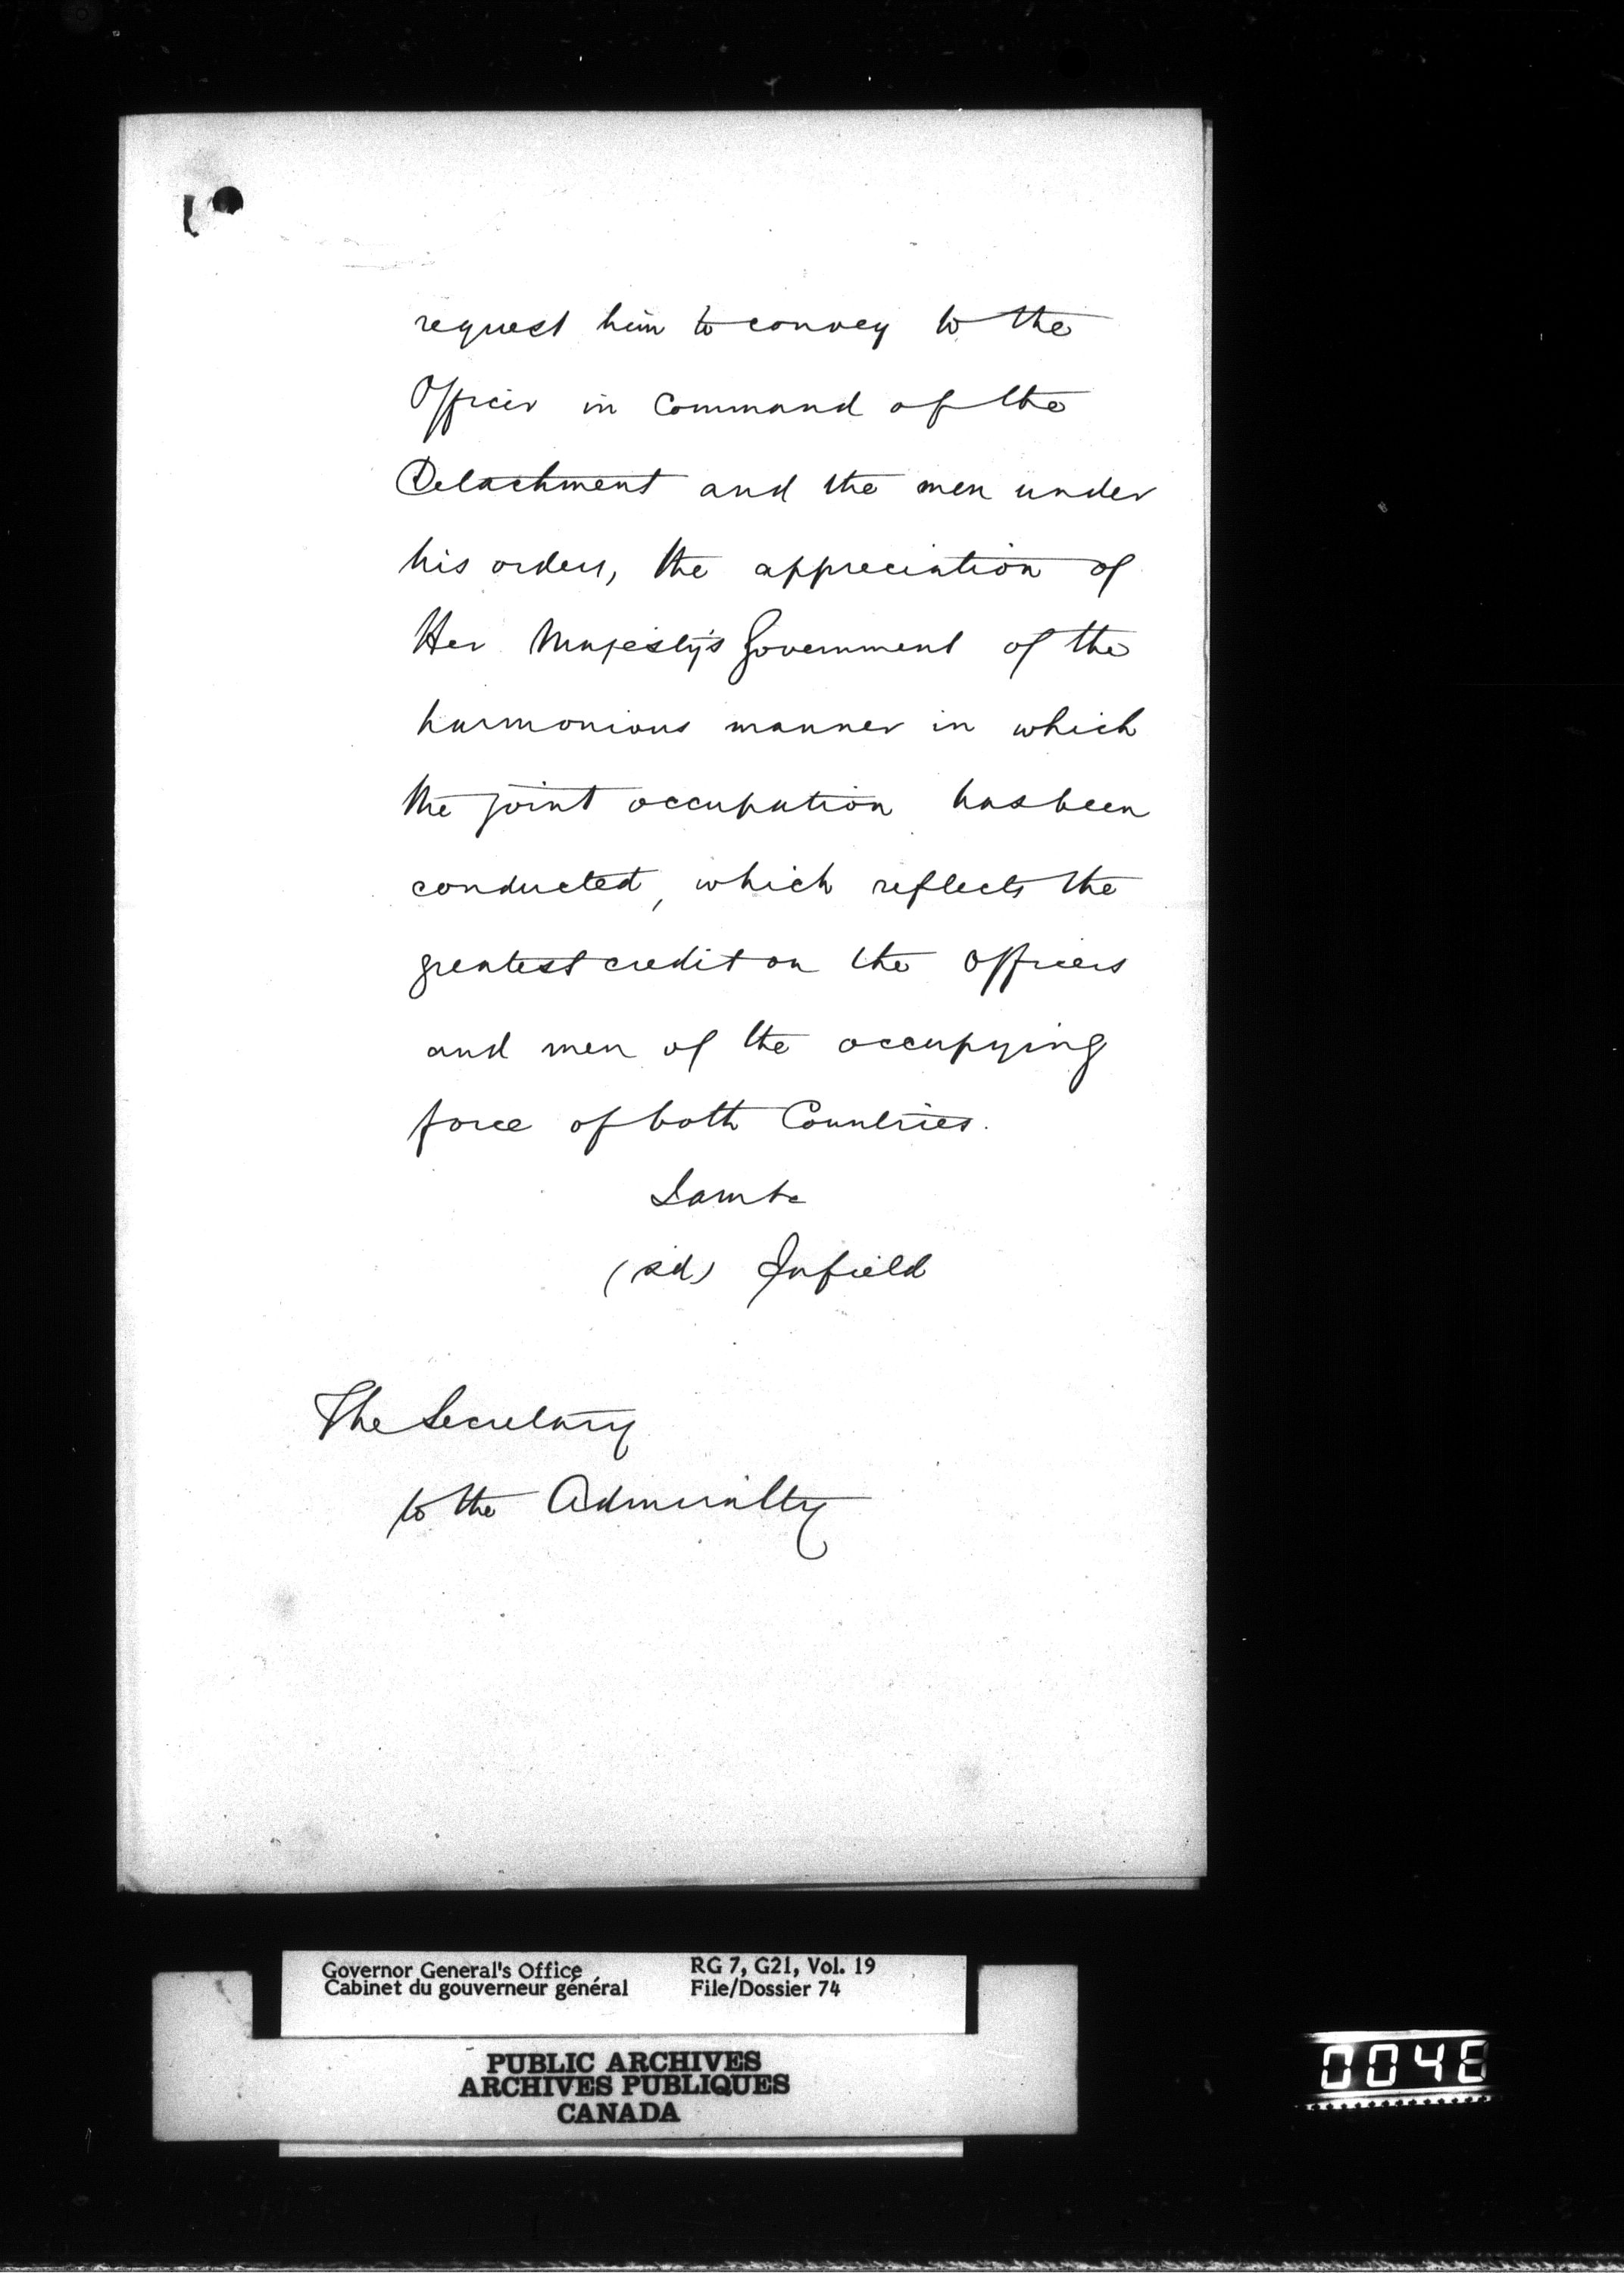 request him to convey to the
Officer in Command of the
Detachment and the men under
his orders, the appreciation of
Her Majesty's Government of the
harmonious manner in which
the joint occupation has been
conducted, which reflects the
greatest credit on the Officers
and men of the occupying
force of both Countries.
I am &c
(sd) Enfield
The Secretary
to the Admiralty
Governor General's Office RG 7, G21, Vol. 19
Cabinet du gouverneur général File/Dossier 74
PUBLIC ARCHIVES
ARCHIVES PUBLIQUES
CANADA